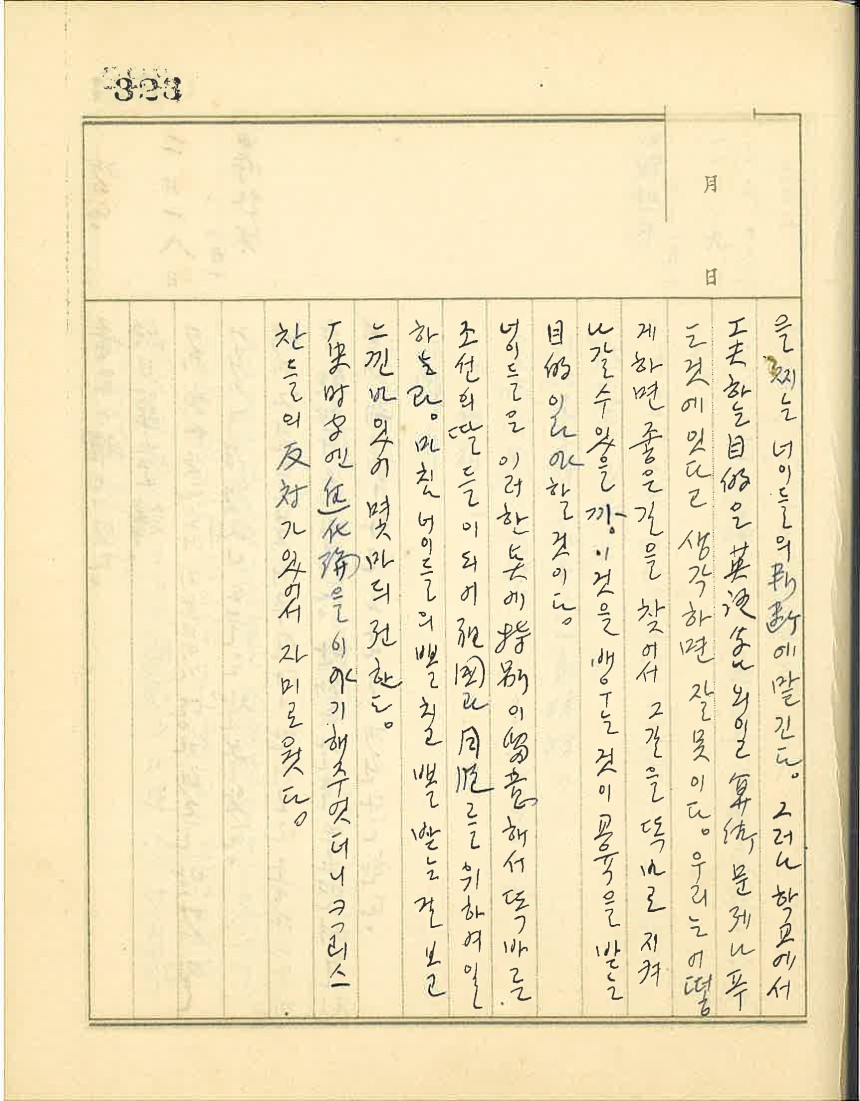 323
月
日
을 찌는 너이들의 判斷에 맡긴다. 그러나 학교에서
工夫하는 目的은 英語字나 외일 算術 문제나 푸
는것에 있다고 생각하면 잘못이다. 우리는 어떻
게하면 좋은길을 찾어서 그길을 똑바로 지켜
나갈수있을까. 이것을 배우는것이 교육을 받는
目的이라야 할것이다
너이들은 이러한 点에 特別이 留意해서 똑바른
조선의 딸들이 되어 祖國과 同胞를 위하여 일
하는 과. 마침 너이들의 뺄칠고 뺄 받는걸 보고
느낀바있어 몇마듸 전한다.
下史時조엔 進化論을 이야기해주엇더니 크리스
찬들의 反対가있어서 자미로웟다